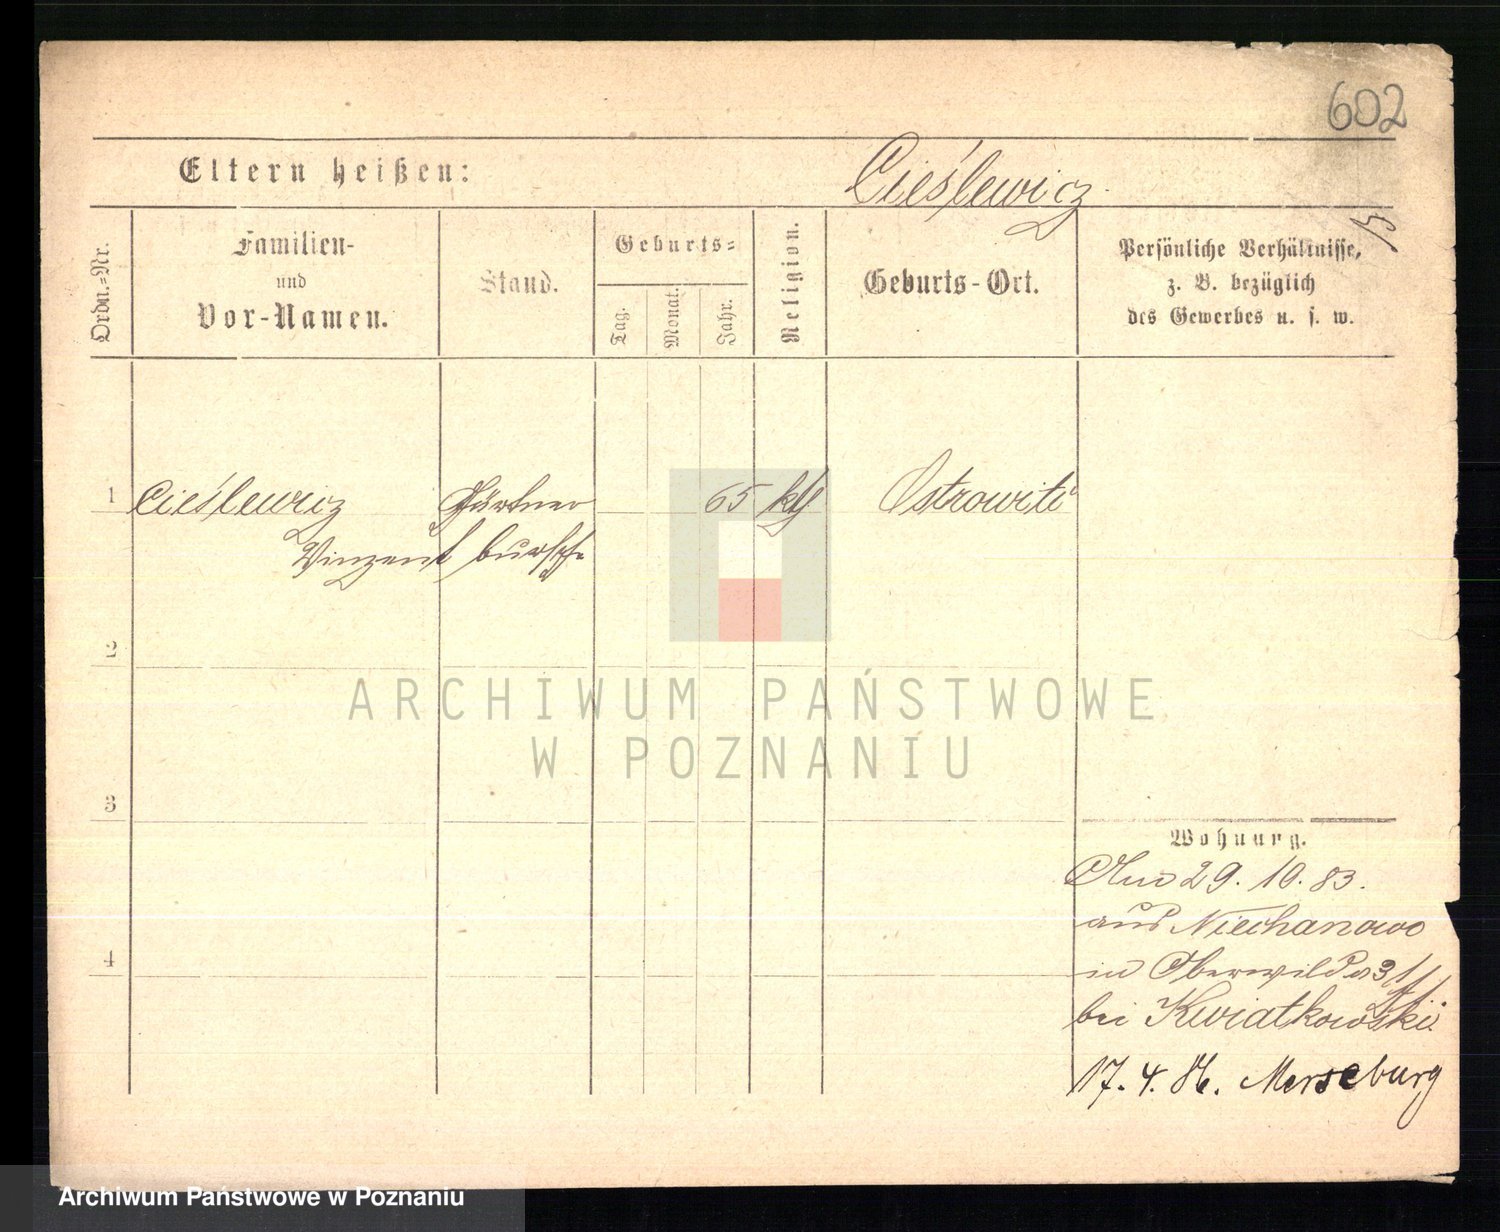 602
Eltern heißen:
Cieślewicz
Ordn.-Nr.
Familien-
und
Vor-Namen.
Stand.
Geburts-
Tag.
Monat.
Jahr.
Religion.
Geburts-Ort.
Persönliche Verhältnisse,
z. B. bezüglich
des Gewerbes u. s. w.
1 Cieślewicz Gärtner 65 kth Ostrowite
Vinzent bursche
2
ARCHIWUM PAŃSTWOWE
W POZNANIU
3
Wohnung.
29. 10. 83.
aus Niechanowo
4
in Oberwilda 31
bei Kwiatkowski
17. 4. 86. Merseburg
Archiwum Państwowe w Poznaniu